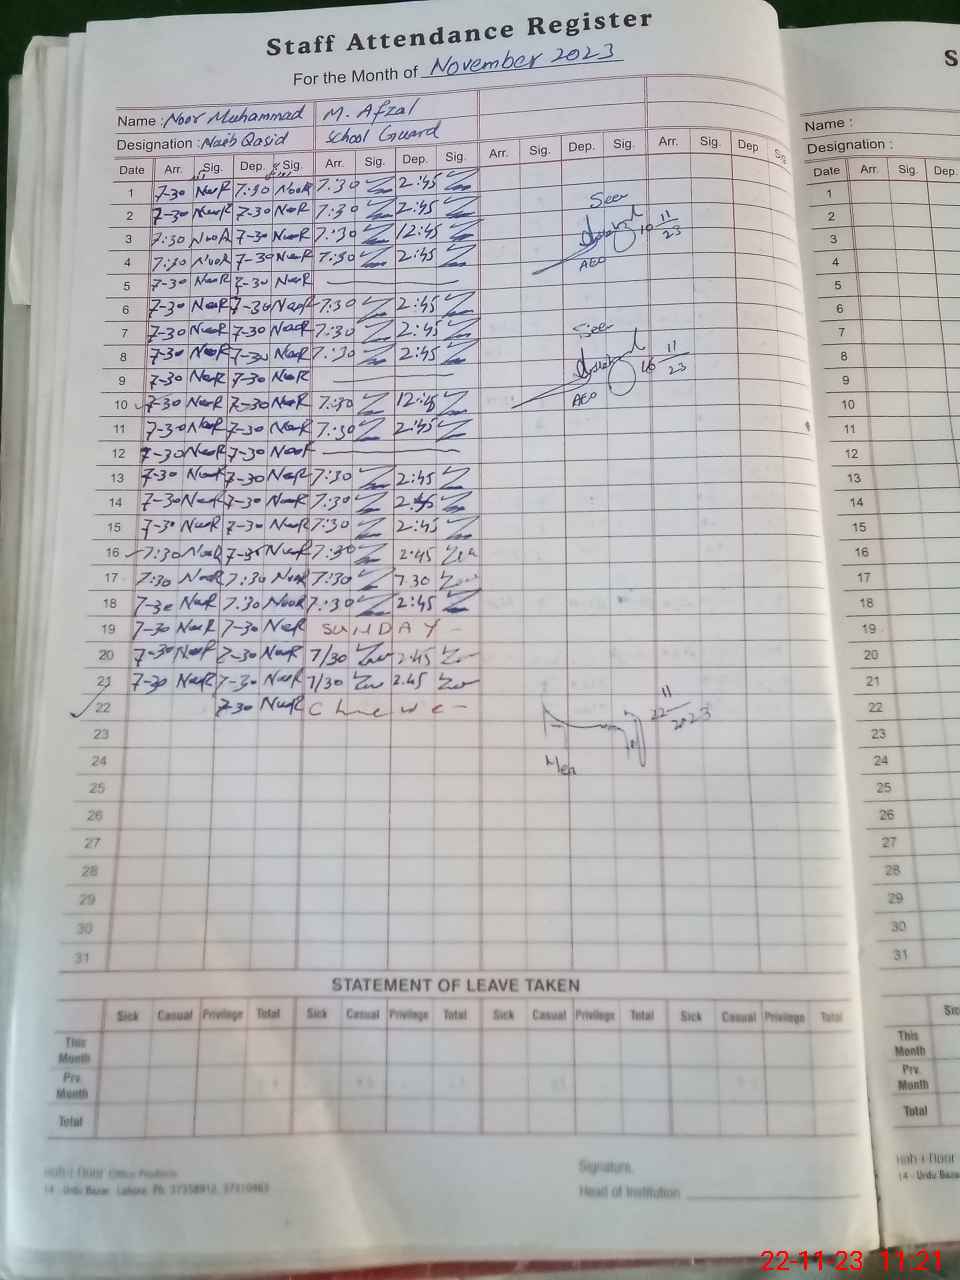 Staff Attendance Register
For the Month of November 2023
Name : Noor Muhammad M. Afzal
Designation : Naib Qasid School Guard
Date Arr. Sig. Dep. Sig. Arr. Sig. Dep. Sig. Arr. Sig. Dep. Sig. Arr. Sig. Dep Sig
1 7-30 NooR 7:30 NooR 7:30 2:45
2 7-30 NooR 7-30 NooR 7:30 2:45
3 7:30 NooR 7-30 NooR 7:30 12:45
4 7:30 NooR 7-30 NooR 7:30 2:45
5 7-30 NooR 7-30 NooR
6 7-30 NooR 7-30 NooR 7:30 2:45
7 7-30 NooR 7-30 NooR 7:30 2:45
8 7-30 NooR 7-30 NooR 7:30 2:45
9 7-30 NooR 7-30 NooR
10 7-30 NooR 7-30 NooR 7:30 12:45
11 7-30 NooR 7-30 NooR 7:30 2:45
12 7-30 NooR 7-30 NooR
13 7-30 NooR 7-30 NooR 7:30 2:45
14 7-30 NooR 7-30 NooR 7:30 2:45
15 7-30 NooR 7-30 NooR 7:30 2:45
16 7:30 NooR 7-30 NooR 7:30 2:45
17 7:30 NooR 7:30 NooR 7:30 7.30
18 7-30 NooR 7:30 NooR 7:30 2:45
19 7-30 NooR 7-30 NooR SUNDAY -
20 7-30 NooR 7-30 NooR 7/30 2:45
21 7-30 NooR 7-30 NooR 7/30 2.45
22 7-30 NooR
23
24
25
26
27
28
29
30
31
Seen
10 11/23
AEO
Seen
16 11/23
AEO
22 11/2023
STATEMENT OF LEAVE TAKEN
Sick Casual Privilege Total Sick Casual Privilege Total Sick Casual Privilege Total Sick Casual Privilege Total
This Month
Prv. Month
Total
Office Products
14 - Urdu Bazar, Lahore. Ph: 37358912, 37310463
Signature,
Head of Institution
S
Name :
Designation :
Date Arr. Sig. Dep.
1
2
3
4
5
6
7
8
9
10
11
12
13
14
15
16
17
18
19
20
21
22
23
24
25
26
27
28
29
30
31
Sic
This Month
Prv. Month
Total
14 - Urdu Baza
22-11-23 11:21